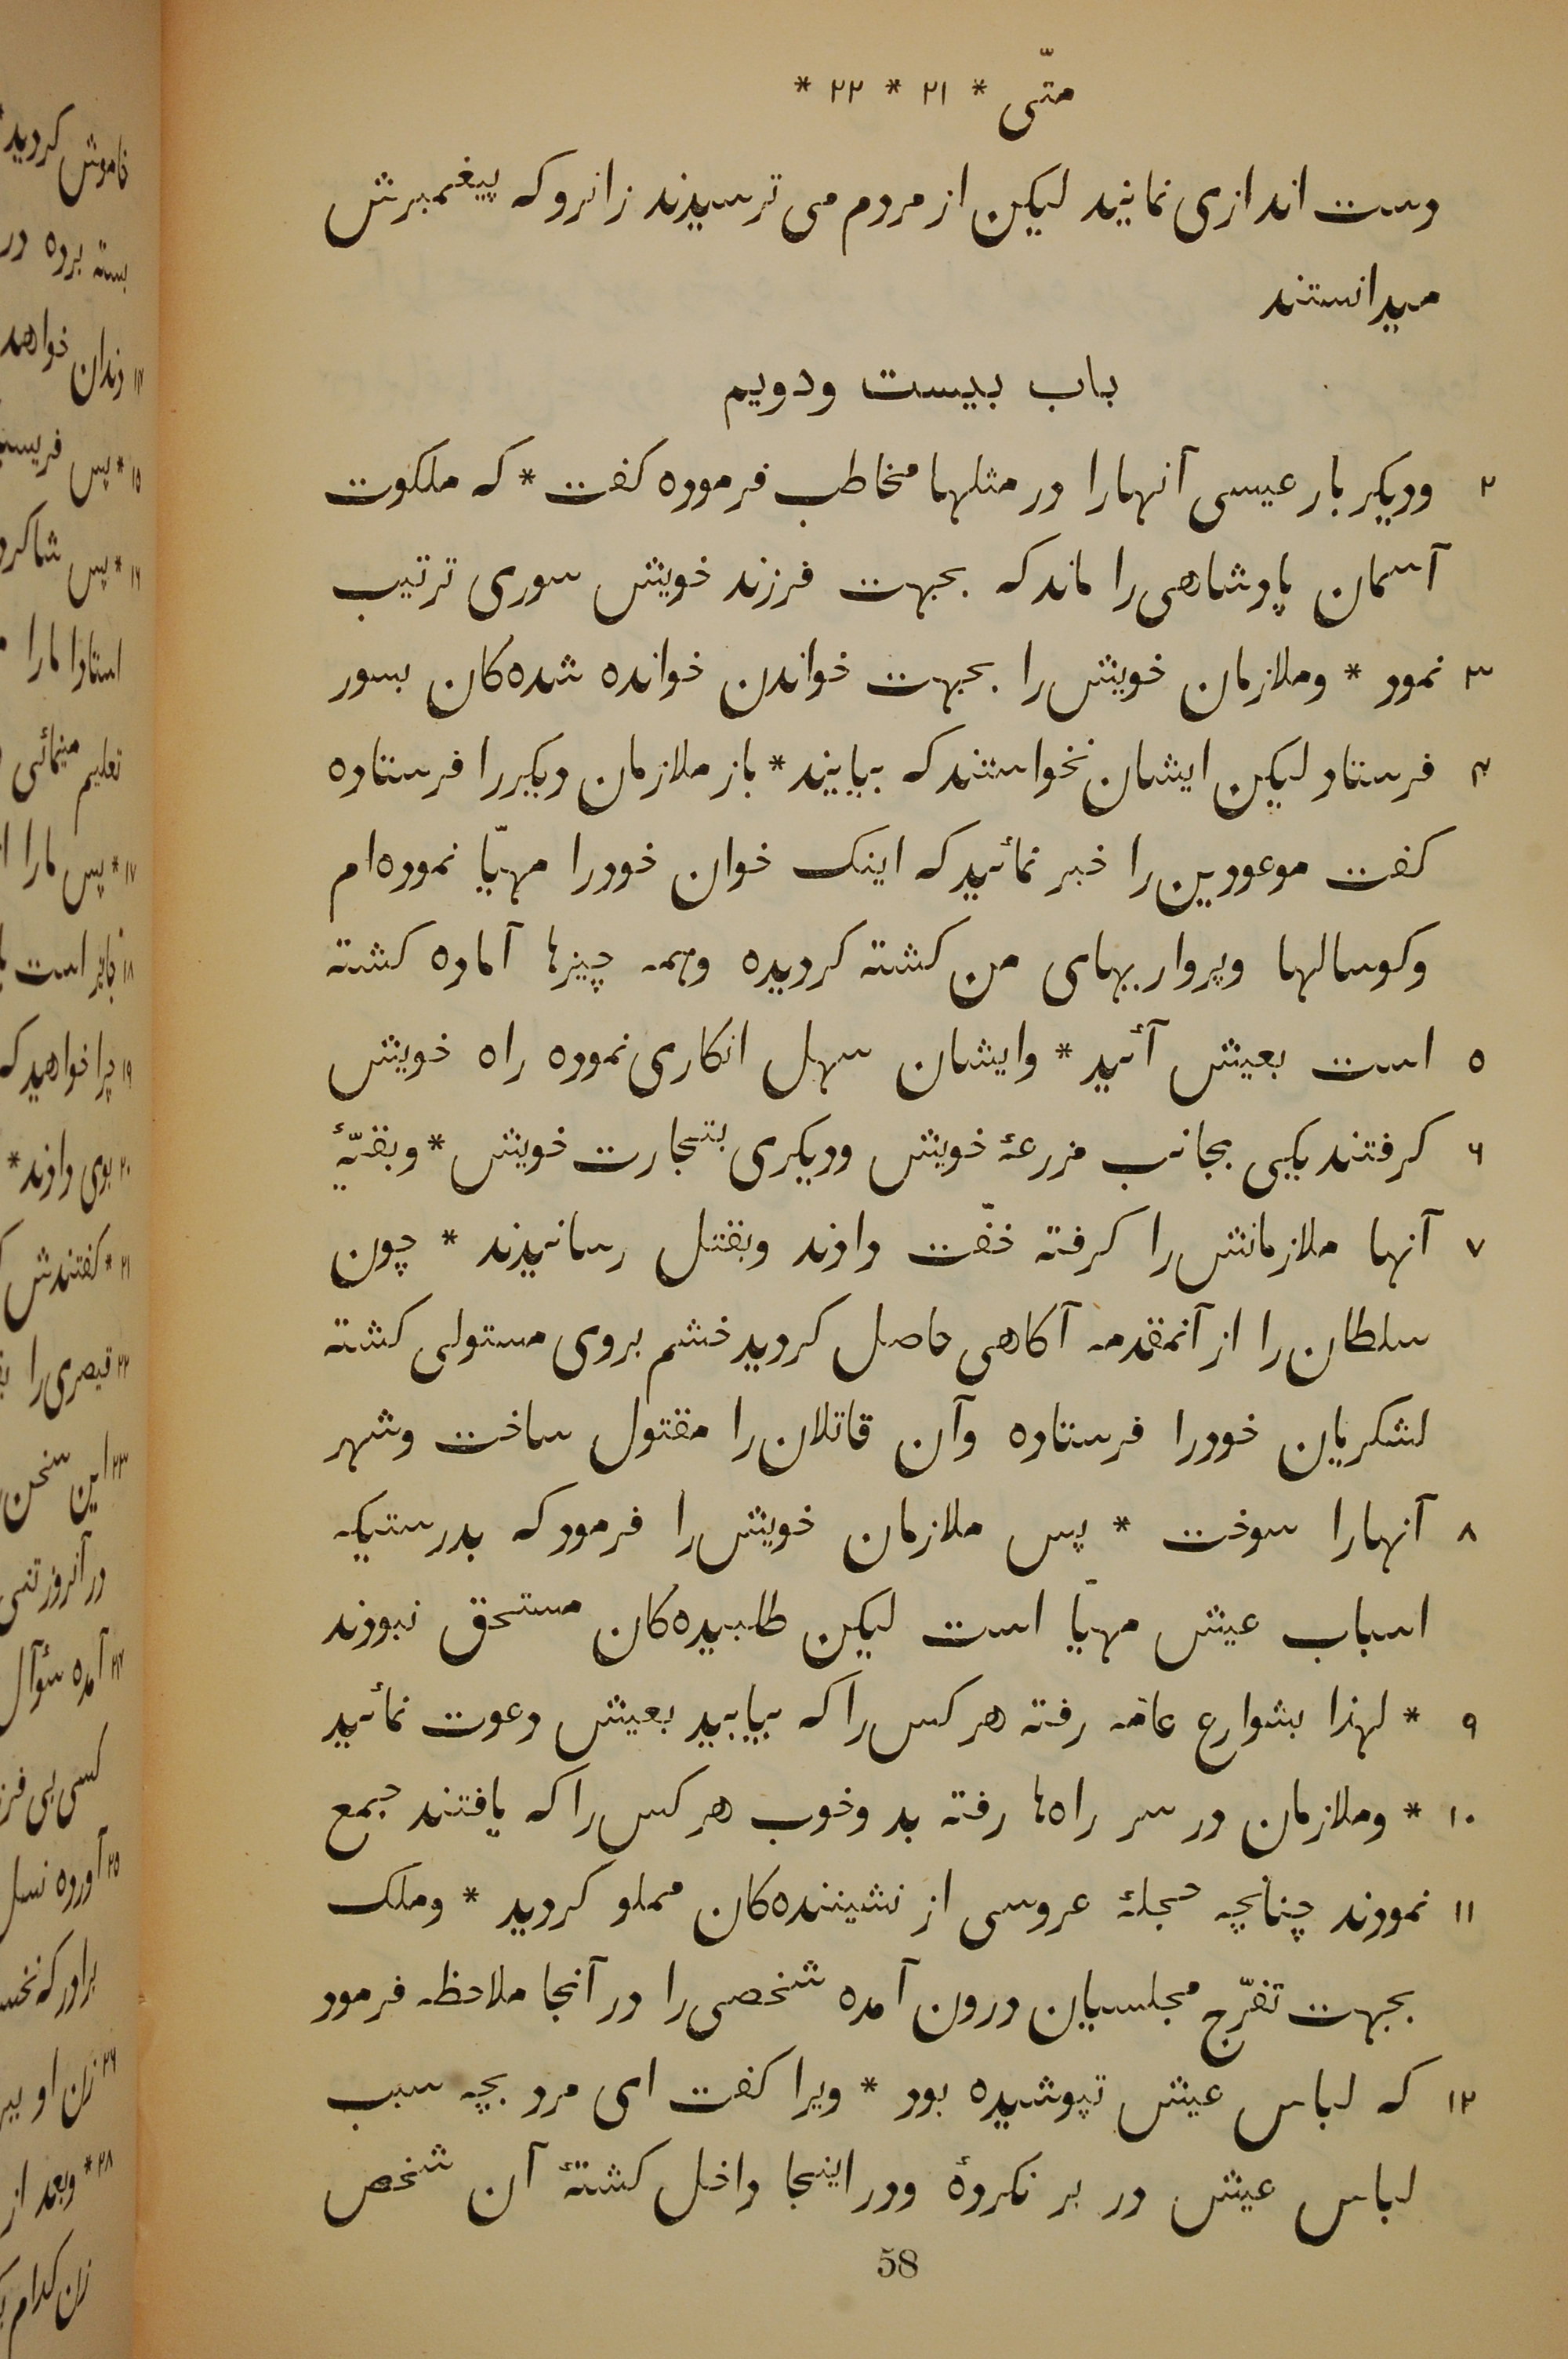 متّی * ۲۱ * ۲۲ *
دست اندازی نمایند لیکن از مردم می ترسیدند زانروکه پیغمبرش
میدانستند
باب بیست ودویم
۲ ودیکر بار عیسی آنهارا در مثلها مخاطب فرموده کفت * که ملکوت
آسمان پادشاهی را ماند که بجهت فرزند خویش سوری ترتیب
۳ نمود * وملازمان خویش را بجهت خواندن خوانده شده‌کان بسور
۴ فرستاد لیکن ایشان نخواستند که بیایند * باز ملازمان دیکر را فرستاده
کفت موعودین را خبر نمائید که اینک خوان خودرا مهیّا نموده‌ام
وکوسالها وپرواریهای من کشته کردیده وهمه چیزها آماده کشته
۵ است بعیش آئید * وایشان سهل انکاری نموده راه خویش
۶ کرفتند یکی بجانب مزرعهٔ خویش ودیکری بتجارت خویش * وبقیّهٔ
۷ آنها ملازمانش را کرفته خفّت دادند وبقتل رسانیدند * چون
سلطان را از آنمقدمه آکاهی حاصل کردید خشم بروی مستولی کشته
لشکریان خودرا فرستاده وآن قاتلان را مقتول ساخت وشهر
۸ آنهارا سوخت * پس ملازمان خویش را فرمود که بدرستیکه
اسباب عیش مهیّا است لیکن طلبیده‌کان مستحق نبودند
۹ * لهذا بشوارع عامّه رفته هر کس را که بیابید بعیش دعوت نمائید
۱۰ * وملازمان در سر راه‌ها رفته بد وخوب هر کس را که یافتند جمع
۱۱ نمودند چنانچه حجلهٔ عروسی از نشیننده‌کان مملو کردید * وملک
بجهت تفرّج مجلسیان درون آمده شخصی را در آنجا ملاحظه فرمود
۱۲ که لباس عیش نپوشیده بود * ویرا کفت ای مرد بچه سبب
لباس عیش در بر نکردهٔ ودر اینجا داخل کشتهٔ آن شخص
58
خاموش کردید
بسته برده در
دندان خواهد
۱۵ * پس
۱۶ * پس
مارا
تعلیم مینمائی
۱۷ * پس مارا
۱۸ است
۱۹ چرا خواهید که
۲۰ بوی دادند *
۲۱ * کفتندش
۲۲ قیصری را
۲۳ این سخن
در آنروز
آمده سؤآل
کسی بی
۲۵ آورده نسل
برادر که
۲۶ زن او
۲۸ * وبعد از
زن کدام